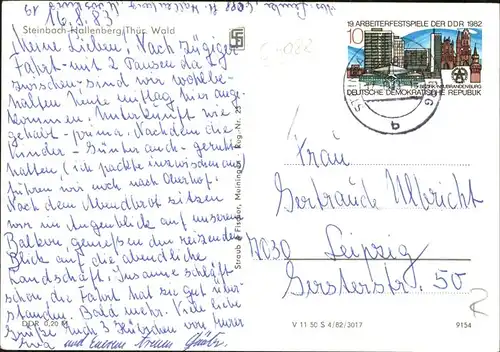 16.8.83
Steinbach-Hallenberg/Thür. Wald
Meine Lieben, Nach zügiger
Fahrt - mit 2 Pausen da-
zwischen - sind wir wohlbe-
halten heute mittag hier ange-
kommen. Unterkunft wie
gehabt - prima. Nachdem die
Kinder - Günter auch - geruht
hatten (ich packte inzwischen aus)
fuhren wir noch nach Oberhof.
Nach dem Abendbrot sitzen
wir im Augenblick auf unserem
Balkon, genießen den reizenden
Blick auf die abendliche
Landschaft. Susanne schläft
schon, die Fahrt hat sie gut über-
standen. Bald mehr. Viele liebe
Grüße Euch 3 Hübschen von Eurer
Eva und Eurem treuen
DDR 0,20 M
Straub & Fischer, Meiningen Reg.-Nr. 23
19. ARBEITERFESTSPIELE DER DDR 1982
10
BEZIRK NEUBRANDENBURG
DEUTSCHE DEMOKRATISCHE REPUBLIK
Frau
Gertraude Ulbricht
7030 Leipzig
Gersterstr. 50
V 11 50 S 4/82/3017
9154